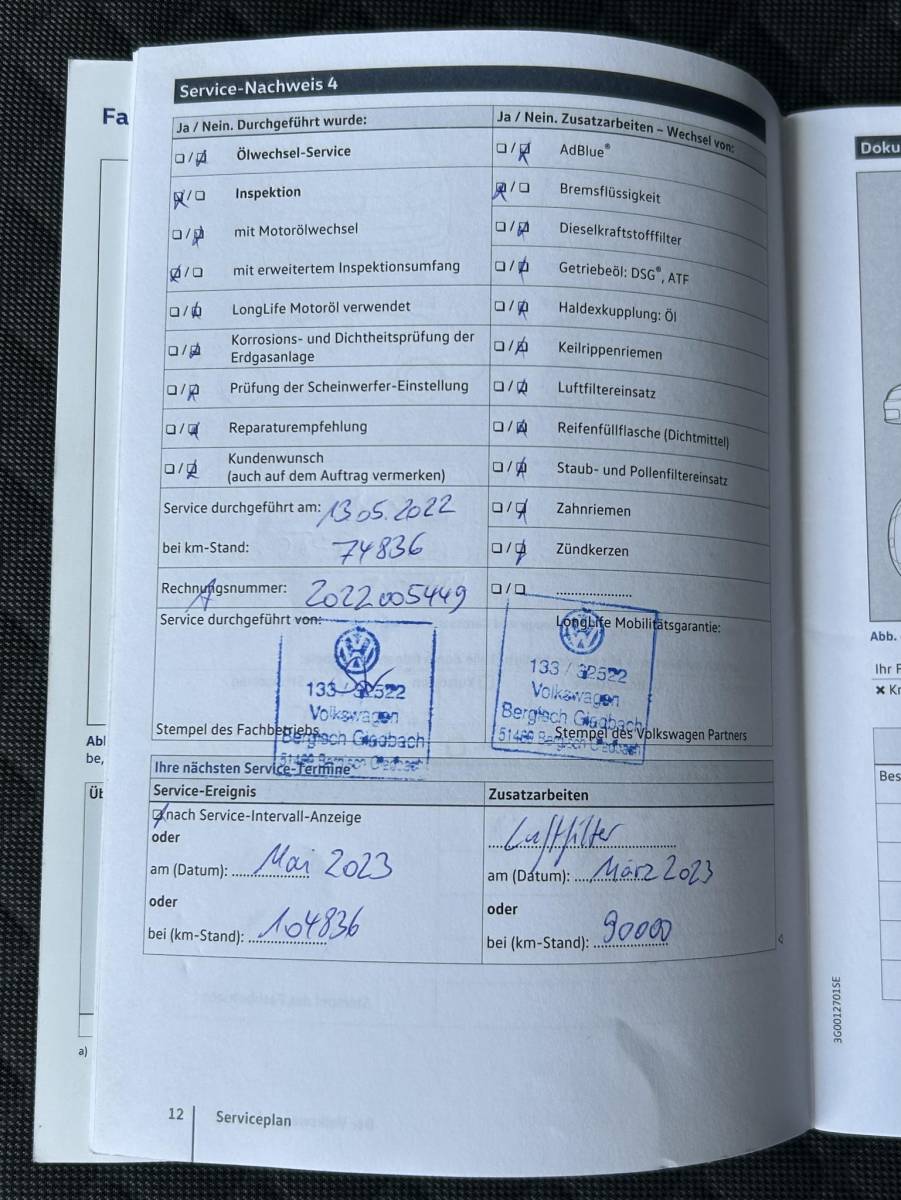 Fa
Service-Nachweis 4
Ja / Nein. Durchgeführt wurde:
Ölwechsel-Service
Inspektion
mit Motorölwechsel
mit erweitertem Inspektionsumfang
LongLife Motoröl verwendet
Korrosions- und Dichtheitsprüfung der
Erdgasanlage
Prüfung der Scheinwerfer-Einstellung
Reparaturempfehlung
Kundenwunsch
(auch auf dem Auftrag vermerken)
Service durchgeführt am: 13.05.2022
bei km-Stand: 74836
Rechnungsnummer: 2022005449
Service durchgeführt von:
133 / 32522
Volkswagen
Bergisch Gladbach
51469 Bergisch Gladbach
Stempel des Fachbetriebs
Ja / Nein. Zusatzarbeiten – Wechsel von:
AdBlue®
Bremsflüssigkeit
Dieselkraftstofffilter
Getriebeöl: DSG®, ATF
Haldexkupplung: Öl
Keilrippenriemen
Luftfiltereinsatz
Reifenfüllflasche (Dichtmittel)
Staub- und Pollenfiltereinsatz
Zahnriemen
Zündkerzen
LongLife Mobilitätsgarantie:
133 / 32522
Volkswagen
Bergisch Gladbach
51469 Bergisch Gladbach
Stempel des Volkswagen Partners
Ihre nächsten Service-Termine
Service-Ereignis
nach Service-Intervall-Anzeige
oder
am (Datum): Mai 2023
oder
bei (km-Stand): 104836
Zusatzarbeiten
Luftfilter
am (Datum): März 2023
oder
bei (km-Stand): 90000
12 Serviceplan
Abl
be,
Üt
a)
Doku
Abb.
Ihr F
✖ Kr
Bes
3G0012701SE